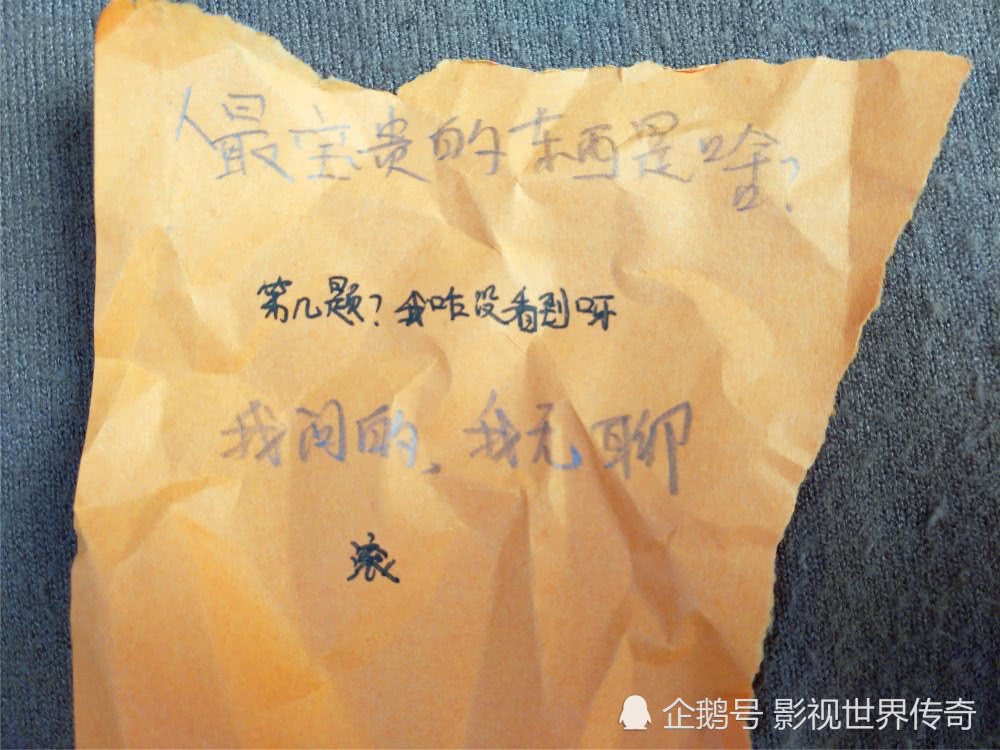 人最宝贵的东西是啥?
第几题?我咋没看到呀
我问的,我无聊
滚
企鹅号 影视世界传奇